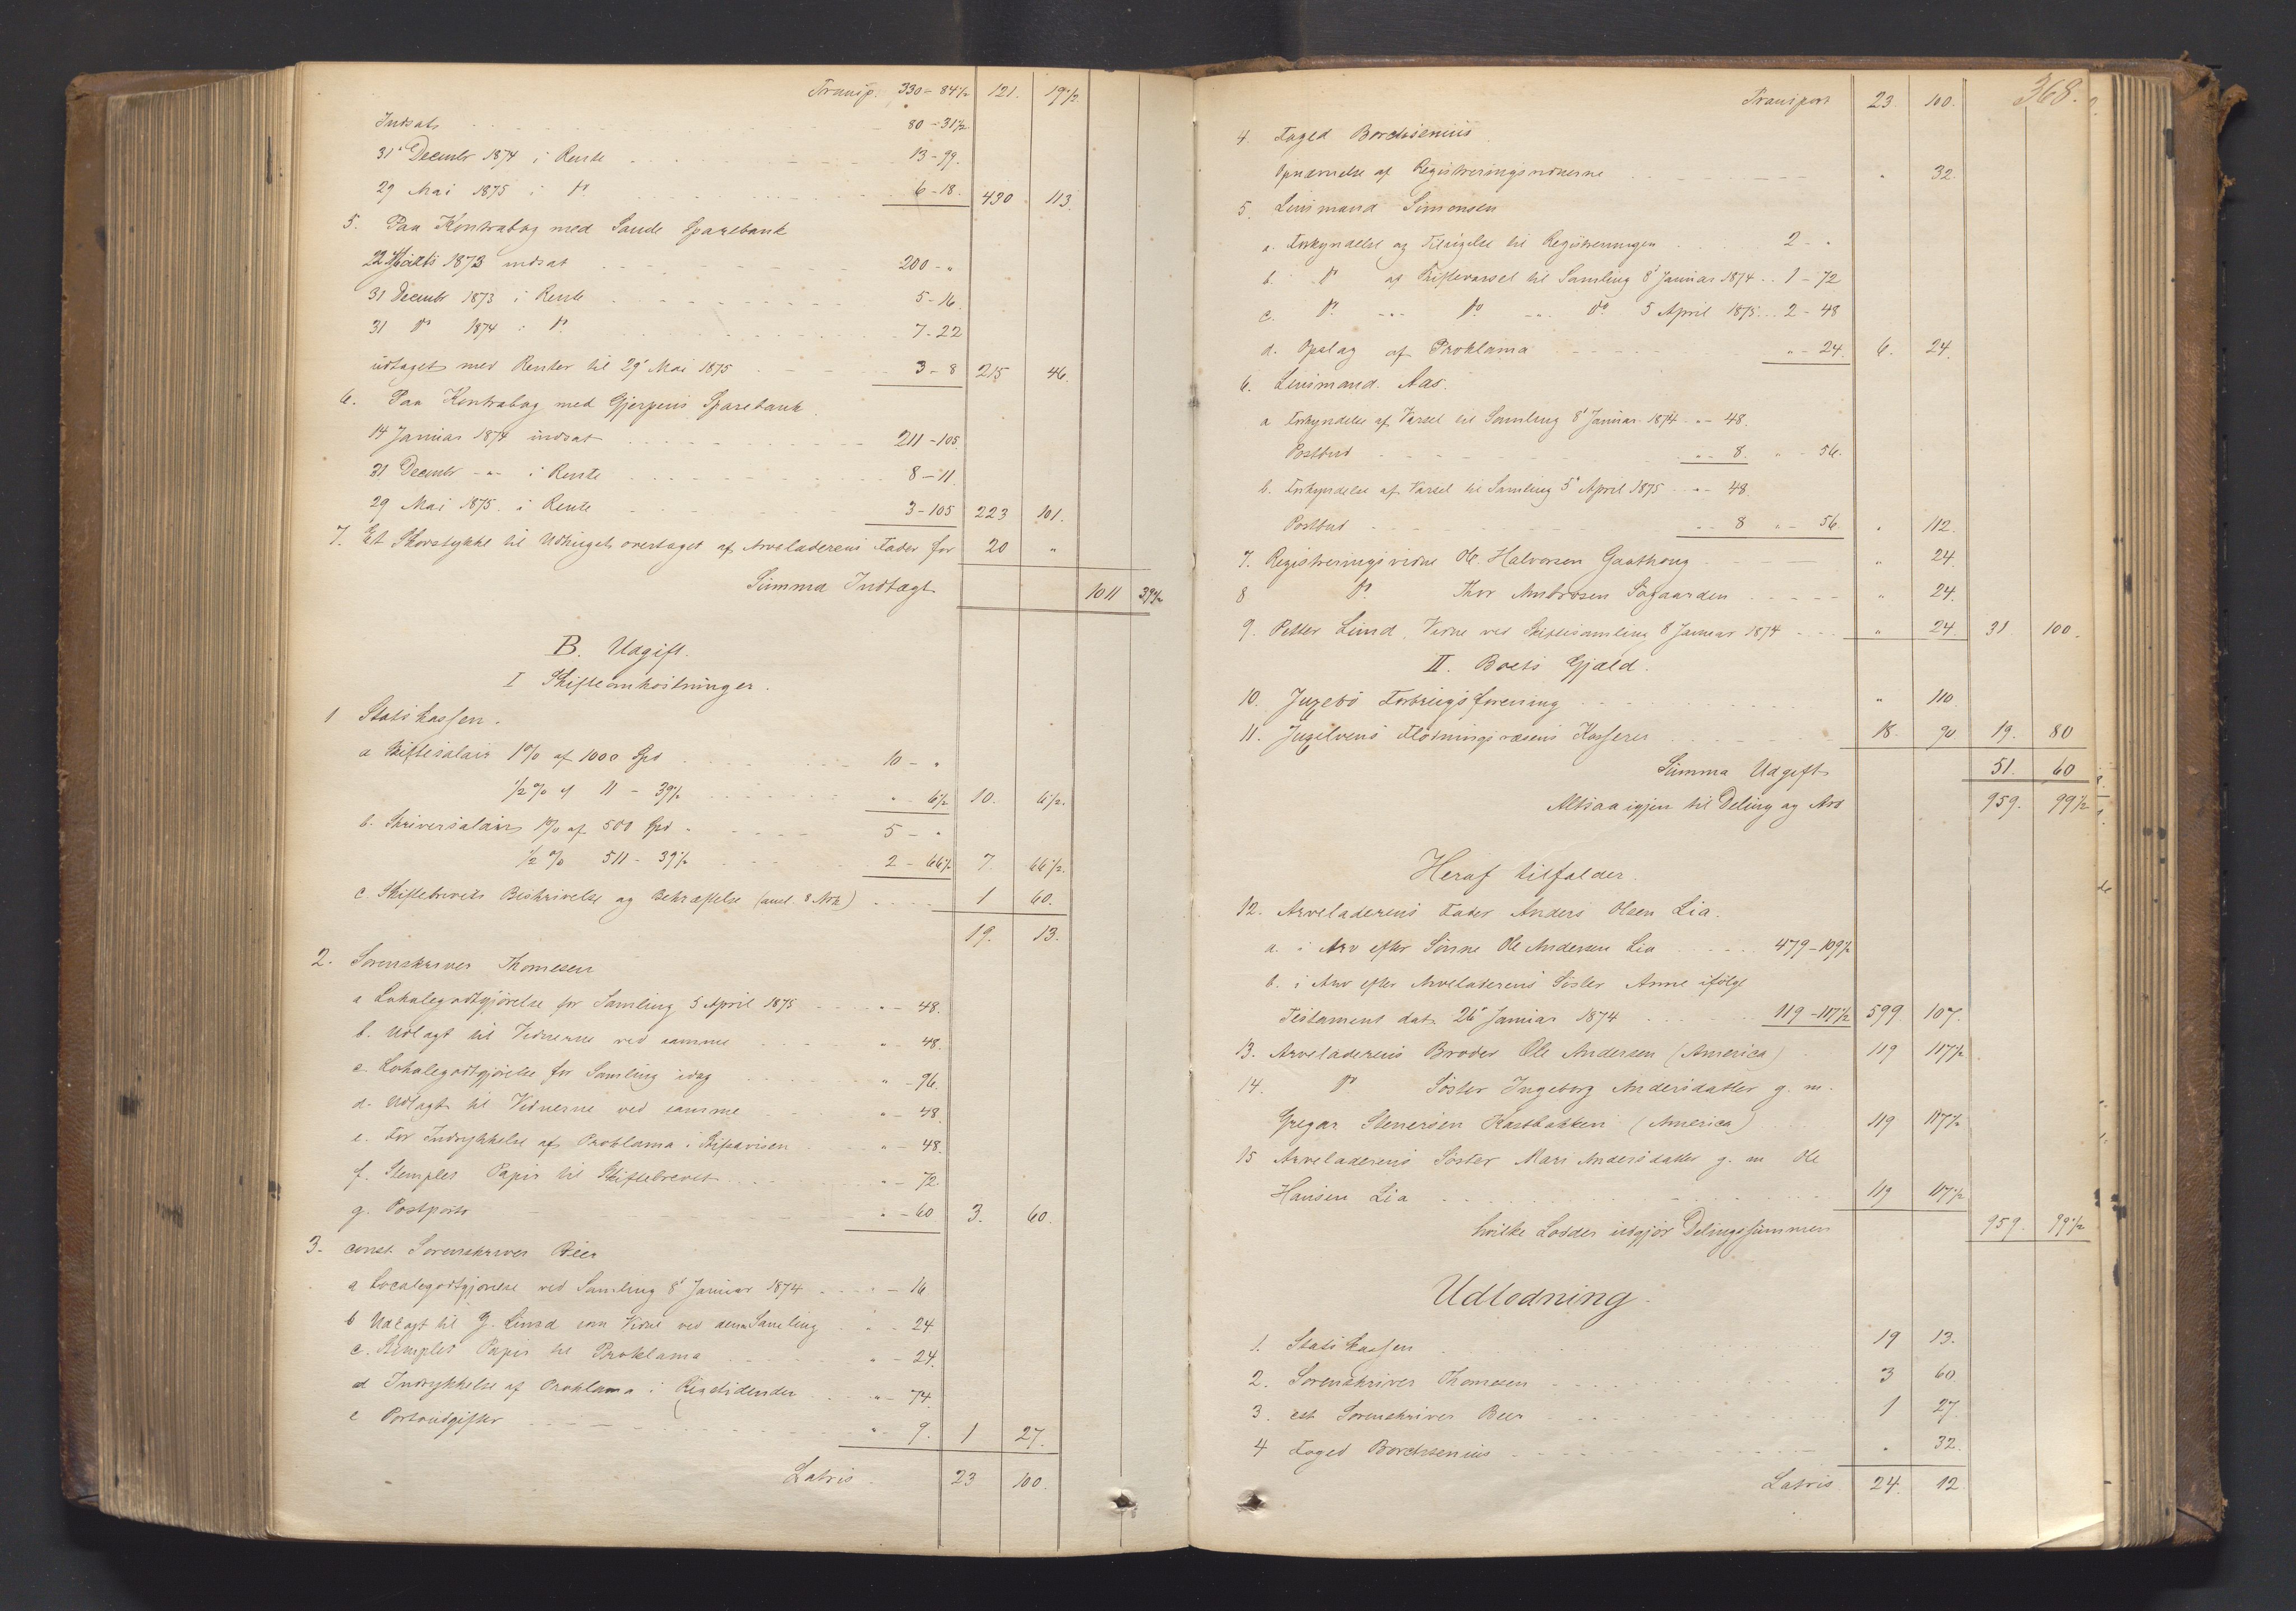 Transp. 330 - 84½ 121. 19½
Indsat 80 - 31½
31' Decembr 1874 i Rente 13 - 99.
29 Mai 1875 i do 6 - 18. 430 113.
5. Paa Kontrabog med Sande Sparebank
22 Marts 1873 indsat 200 - "
31 Decembr 1873 i Rente 5 - 16.
31 do 1874 i do 7 - 22
udtaget med Renter til 29' Mai 1875 3 - 8 215 46.
6. Paa Kontrabog med Gjerpens Sparebank
14 Januar 1874 indsat 211 - 105.
31 Decembr -"- i Rente 8 - 11.
29 Mai 1875. i Rente 3 - 105 223 101.
7. Et Skovstykke til Udhugst overtaget af Arveladerens Fader for 20 "
Summa Indtægt 1011 39½
B. Udgift.
I Skifteomkostninger.
1 Statskassen.
a Skiftesalair 1% af 1000 Spd 10 - "
½% af 11 - 39½ " - 6½ 10. 6½.
b. Skriversalair 1% af 500 Spd 5 - "
½% 511 - 39½ 2 - 66½ 7. 66½.
c Skiftebrevets Beskrivelse og Bekræftelse (ansl. 8 Ark) 1 60.
19. 13.
2. Sorenskriver Thomesen
a Lokalegodtgjörelse for Samling 5 April 1875 " - 48.
b. Udlagt til Vidnerne ved samme " - 48.
c. Lokalegodtgjörelse for Samling idag " - 96.
d. Udlagt til Vidnerne ved samme " - 48.
e. For Indrykkelse af Proklama i Stiftsavisen " - 48.
f. Stemplet Papir til Skiftebrevet " - 72
g. Postporto " - 60 3. 60.
3. const. Sorenskriver Beer
a Localegodtgjörelse ved Samling 8' Januar 1874 " - 16
b Udlagt til P. Lund som Vidne ved denne Samling " - 24
c. Stemplet Papir til Proklama " - 24.
d Indrykkelse af Proklama i Rigstidende " - 74.
e Portoudgifter " - 9. 1 27.
Latris 23 100.
368.
Transport 23. 100.
4. Foged Borchsenius
Opnævnelse af Registreringsvidnerne " 32.
5. Lensmand Simonsen
a. Forkyndelse og Tilsigelse til Registreringen 2 - "
b. do af Skiftevarsel til Samling 8' Januar 1874 1 - 72
c. do -"- do -"- do 5 April 1875 2 - 48
d. Opslag af Proklama " - 24. 6. 24.
6. Lensmand Aas.
a Forkyndelse af Varsel til Samling 8' Januar 1874 " - 48.
Postbud " - 8. " - 56.
b. Forkyndelse af Varsel til Samling 5' April 1875 " - 48
Postbud " - 8 " - 56 " 112.
7. Registreringsvidne Ole Halvorsen Gaathoug " 24.
8 do Thor Ambrosen Søgaarden " 24.
9. Petter Lund, Vidne ved Skiftesamling 8 Januar 1874 " 24. 31. 100.
II. Boets Gjæld.
10. Forbrugsforening " 110.
11. Flödningsvæsens Kasserer 18. 90 19. 80
Summa Udgift 51. 60
Altsaa igjen til Deling og Arv 959. 99½
Heraf tilfalder.
12. Arveladerens Fader Anders Olsen Lia.
a. i Arv efter Sønne Ole Andersen Lia 479 - 109½
b. i Arv efter Arveladerens Söster Anne ifölge
Testament dat. 26' Januar 1874 119 - 117½ 599 107.
13. Arveladerens Broder Ole Andersen (America) 119 117½
14. do Söster Ingeborg Andersdatter g. m.
Gregar Stenersen Kastbakken (America) 119 117½
15 Arveladerens Söster Mari Andersdatter g. m. Ole
Hansen Lia 119 117½
hvilke Lodder udgjör Delingssummen 959. 99½
Udlodning.
1. Statskassen 19 13.
2. Sorenskriver Thomesen 3 60
3. cst. Sorenskriver Beer 1 27.
4 Foged Borchsenius " 32.
Latris 24. 12